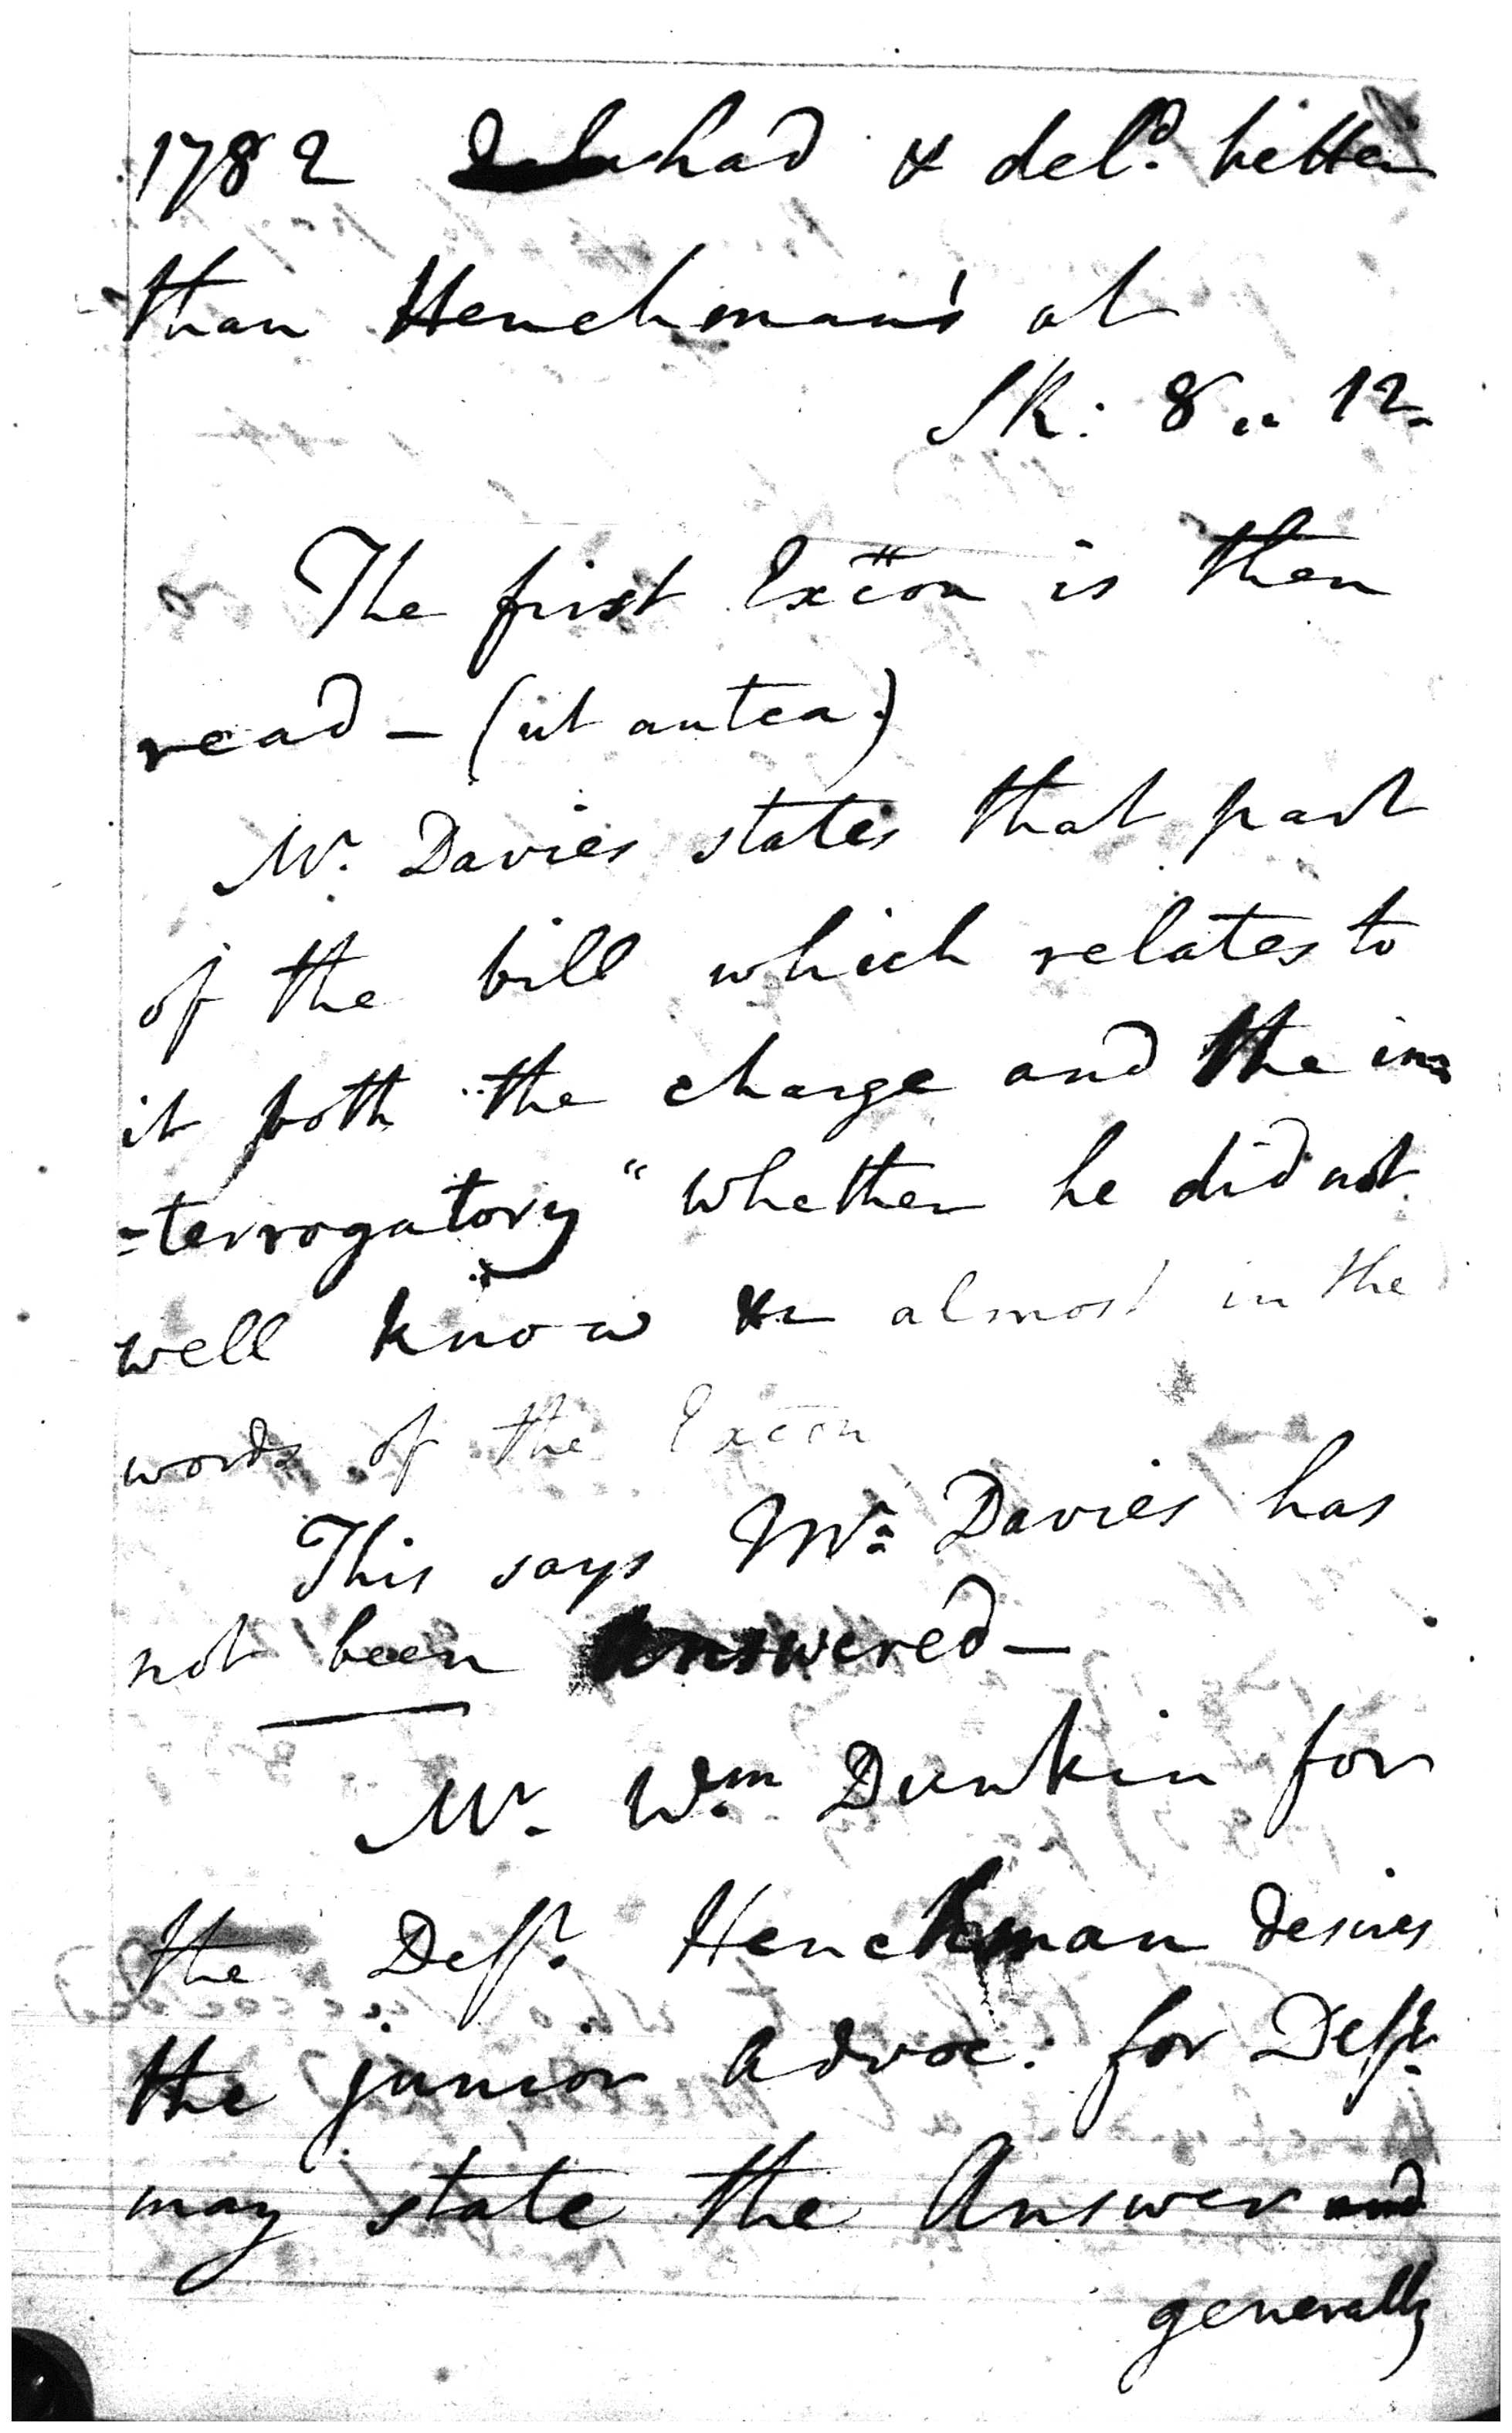 1782 had & del.d better
than Henchman's at
SR: 8 " 12.
The first Exc̄on is then
read — (ut antea)
Mr. Davies states that part
of the bill which relates to
it both the charge and the in=
=terrogatory "Whether he did not
well know &c almost in the
words of the Exc̄on
This says Mr. Davies has
not been answered —
Mr. Wm. Dunkin for
the Deft. Henchman desires
the junior Advoc. for Deft.
may state the Answer and
generally